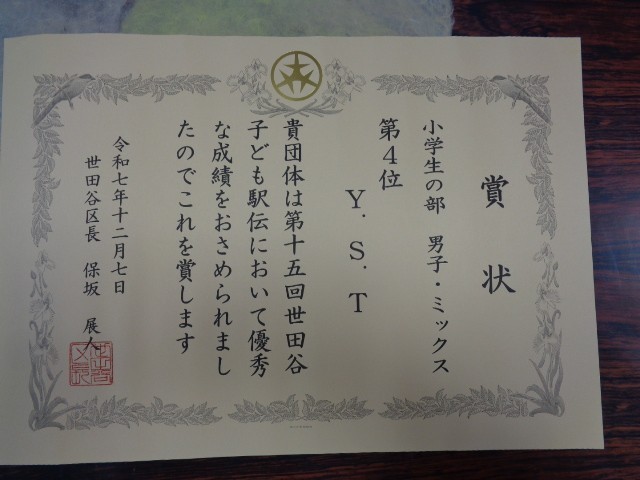 賞状
小学生の部　男子・ミックス
第4位
Y.S.T
貴団体は第十五回世田谷
子ども駅伝において優秀
な成績をおさめられまし
たのでこれを賞します
令和七年十二月七日
世田谷区長　保坂　展人